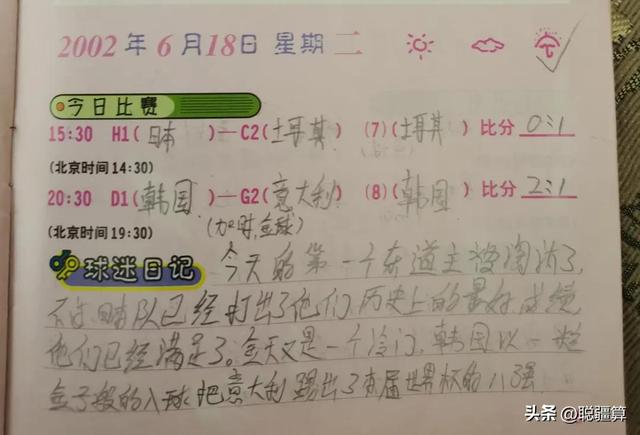 2002年6月18日 星期二
今日比赛
15:30 H1(日本)—C2(土耳其) (7)(土耳其) 比分 0:1
(北京时间14:30)
20:30 D1(韩国)—G2(意大利) (8)(韩国) 比分 2:1
(加时,金球)
(北京时间19:30)
球迷日记
今天的第一个东道主被淘汰了,
不过日本队已经打出了他们历史上的最好成绩
他们已经满足了。今天又是一个冷门,韩国以一粒
金子般的入球把意大利踢出了本届世界杯的八强
头条@聪疆算